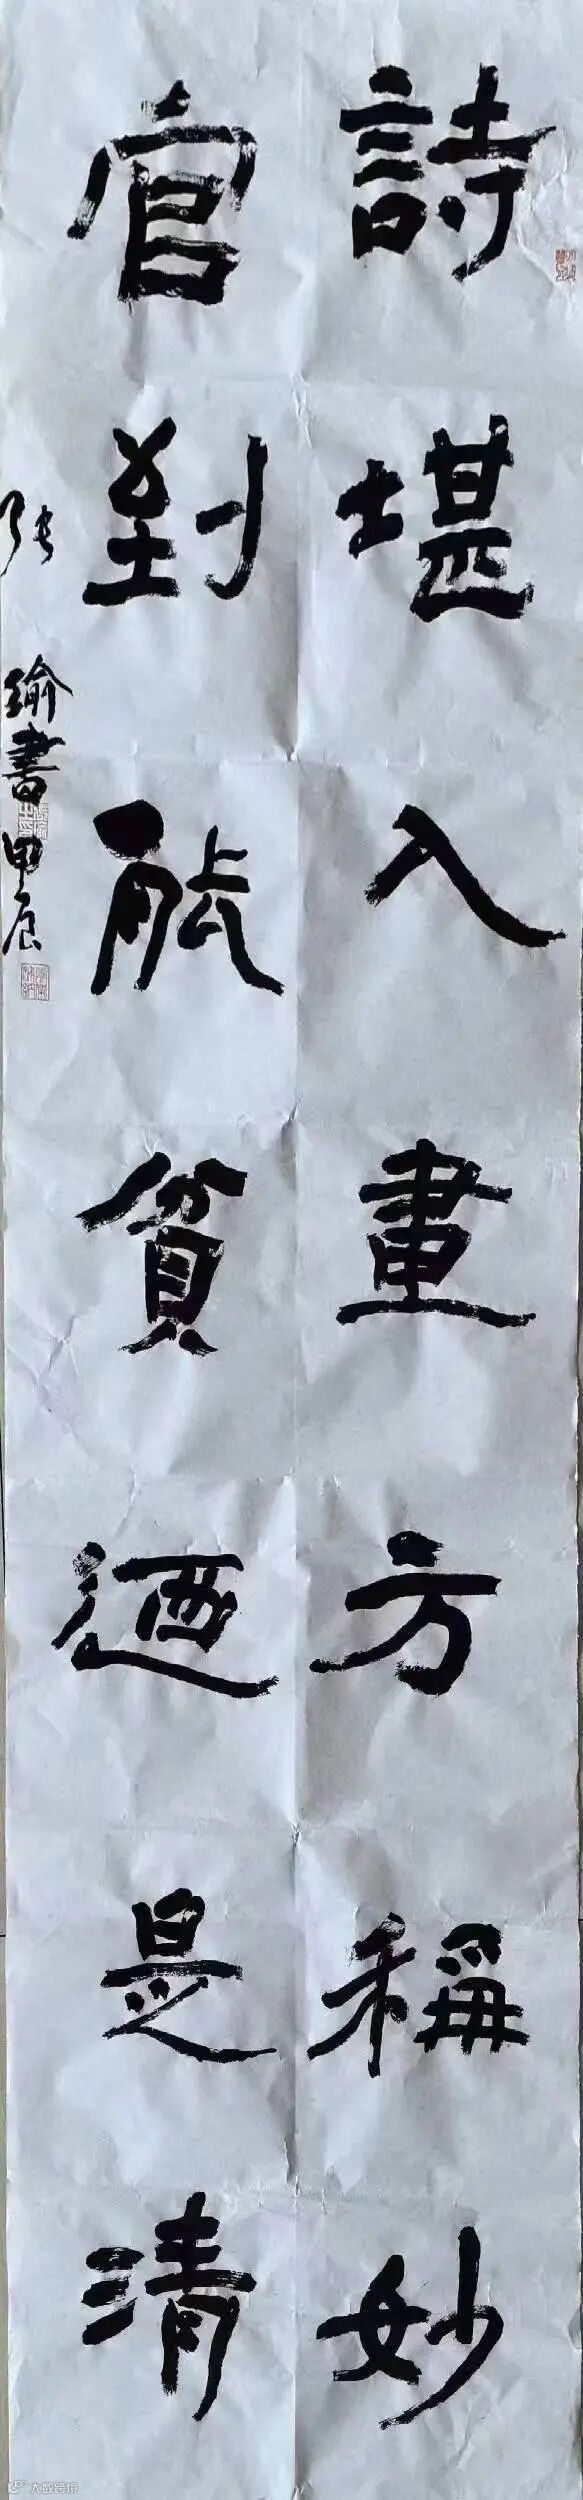 詩堪入畫方稱妙
官到能貧迺是清
张瑜書甲辰
大威跨境